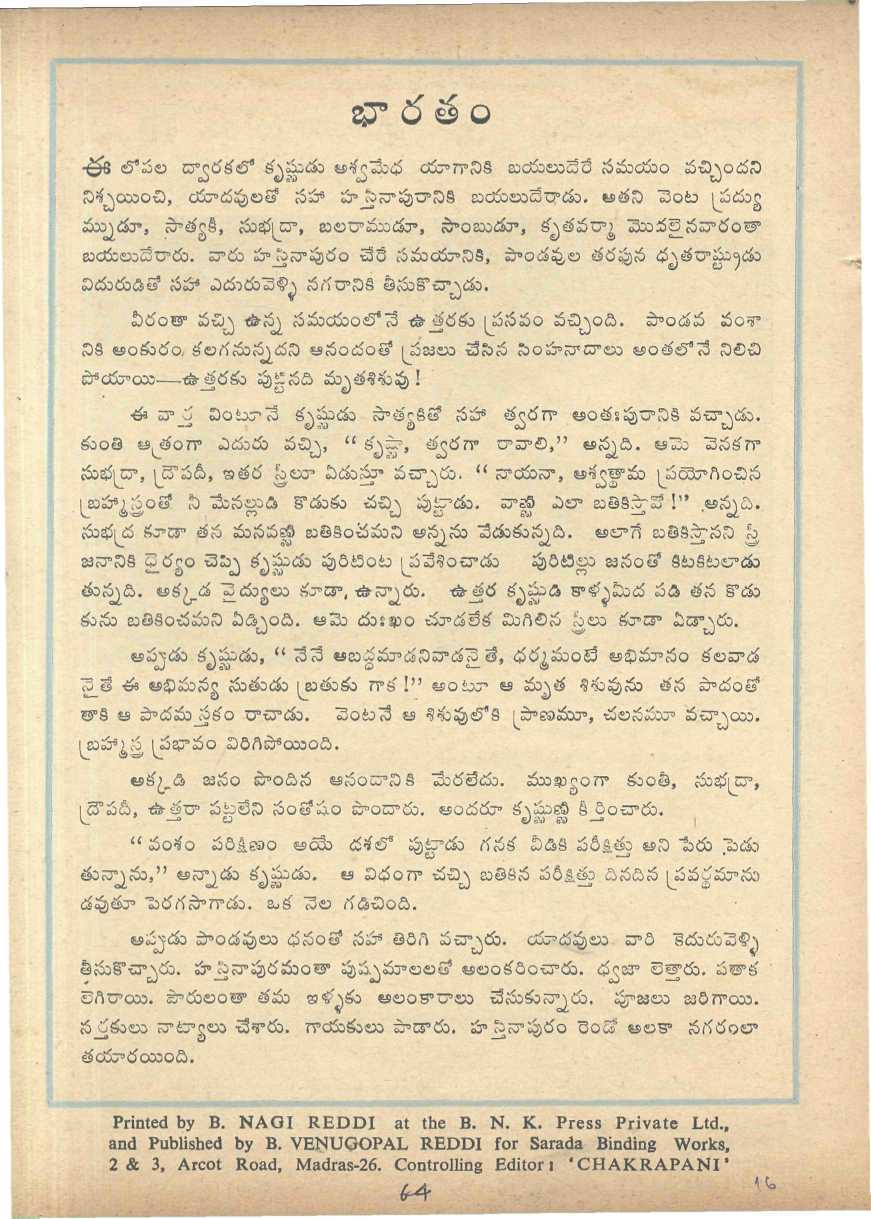 భారతం
ఈ లోపల ద్వారకలో కృష్ణుడు అశ్వమేధ యాగానికి బయలుదేరే సమయం వచ్చిందని
నిశ్చయించి, యాదవులతో సహా హస్తినాపురానికి బయలుదేరాడు. అతని వెంట ప్రద్యు
మ్నుడూ, సాత్యకీ, సుభద్రా, బలరాముడూ, సాంబుడూ, కృతవర్మా మొదలైనవారంతా
బయలుదేరారు. వారు హస్తినాపురం చేరే సమయానికి, పాండవుల తరఫున ధృతరాష్ట్రుడు
విదురుడితో సహా ఎదురువెళ్ళి నగరానికి తీసుకొచ్చాడు.
వీరంతా వచ్చి ఉన్న సమయంలోనే ఉత్తరకు ప్రసవం వచ్చింది. పాండవ వంశా
నికి అంకురం కలగనున్నదని ఆనందంతో ప్రజలు చేసిన సింహనాదాలు అంతలోనే నిలిచి
పోయాయి—ఉత్తరకు పుట్టినది మృతశిశువు!
ఈ వార్త వింటూనే కృష్ణుడు సాత్యకితో సహా త్వరగా అంతఃపురానికి వచ్చాడు.
కుంతి ఆత్రంగా ఎదురు వచ్చి, “కృష్ణా, త్వరగా రావాలి,” అన్నది. ఆమె వెనకగా
సుభద్రా, ద్రౌపదీ, ఇతర స్త్రీలూ ఏడుస్తూ వచ్చారు. “నాయనా, అశ్వత్థామ ప్రయోగించిన
బ్రహ్మాస్త్రంతో నీ మేనల్లుడి కొడుకు చచ్చి పుట్టాడు. వాణ్ణి ఎలా బతికిస్తావో!” అన్నది.
సుభద్ర కూడా తన మనవణ్ణి బతికించమని అన్నను వేడుకున్నది. అలాగే బతికిస్తానని స్త్రీ
జనానికి ధైర్యం చెప్పి కృష్ణుడు పురిటింట ప్రవేశించాడు పురిటిల్లు జనంతో కిటకిటలాడు
తున్నది. అక్కడ వైద్యులు కూడా, ఉన్నారు. ఉత్తర కృష్ణుడి కాళ్ళమీద పడి తన కొడు
కును బతికించమని ఏడ్చింది. ఆమె దుఃఖం చూడలేక మిగిలిన స్త్రీలు కూడా ఏడ్చారు.
అప్పుడు కృష్ణుడు, “నేనే అబద్ధమాడనివాడనైతే, ధర్మమంటే అభిమానం కలవాడ
నైతే ఈ అభిమన్య సుతుడు బ్రతుకు గాక!” అంటూ ఆ మృత శిశువును తన పాదంతో
తాకి ఆ పాదమస్తకం రాచాడు. వెంటనే ఆ శిశువులోకి ప్రాణమూ, చలనమూ వచ్చాయి.
బ్రహ్మాస్త్ర ప్రభావం విరిగిపోయింది.
అక్కడి జనం పొందిన ఆనందానికి మేరలేదు. ముఖ్యంగా కుంతీ, సుభద్రా,
ద్రౌపదీ, ఉత్తరా పట్టలేని సంతోషం పొందారు. అందరూ కృష్ణుణ్ణి కీర్తించారు.
“వంశం పరిక్షీణం అయే దశలో పుట్టాడు గనక వీడికి పరీక్షిత్తు అని పేరు పెడు
తున్నాను,” అన్నాడు కృష్ణుడు. ఆ విధంగా చచ్చి బతికిన పరీక్షిత్తు దినదిన ప్రవర్థమాను
డవుతూ పెరగసాగాడు. ఒక నెల గడిచింది.
అప్పుడు పాండవులు ధనంతో సహా తిరిగి వచ్చారు. యాదవులు వారి కెదురువెళ్ళి
తీసుకొచ్చారు. హస్తినాపురమంతా పుష్పమాలలతో అలంకరించారు. ధ్వజా లెత్తారు. పతాక
లెగిరాయి. పౌరులంతా తమ ఇళ్ళకు అలంకారాలు చేసుకున్నారు. పూజలు జరిగాయి.
నర్తకులు నాట్యాలు చేశారు. గాయకులు పాడారు. హస్తినాపురం రెండో అలకా నగరంలా
తయారయింది.
Printed by B. NAGI REDDI at the B. N. K. Press Private Ltd.,
and Published by B. VENUGOPAL REDDI for Sarada Binding Works,
2 & 3, Arcot Road, Madras-26. Controlling Editor : 'CHAKRAPANI'
64
16